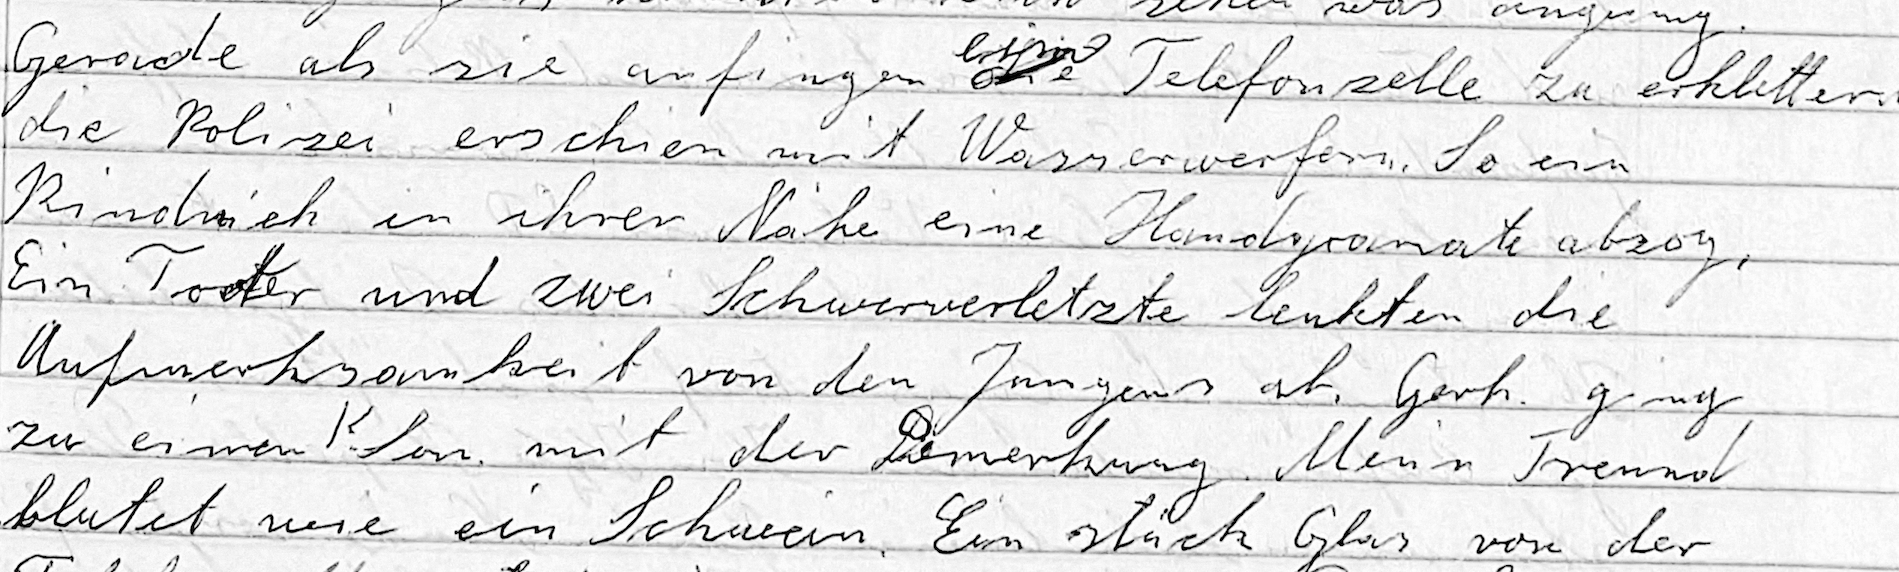 sehen was anging.
Gerade als sie anfingen eine Telefonzelle zu erklettern
die Polizei erschien mit Wasserwerfern. So ein
Rindvieh in ihrer Nähe eine Handgranate abzog.
Ein Toter und zwei Schwerverletzte lenkten die
Aufmerksamkeit von den Jungens ab. Gerh. ging
zu einen K. San. mit der Bemerkung. Mein Freund
blutet wie ein Schwein. Ein stück Glas von der